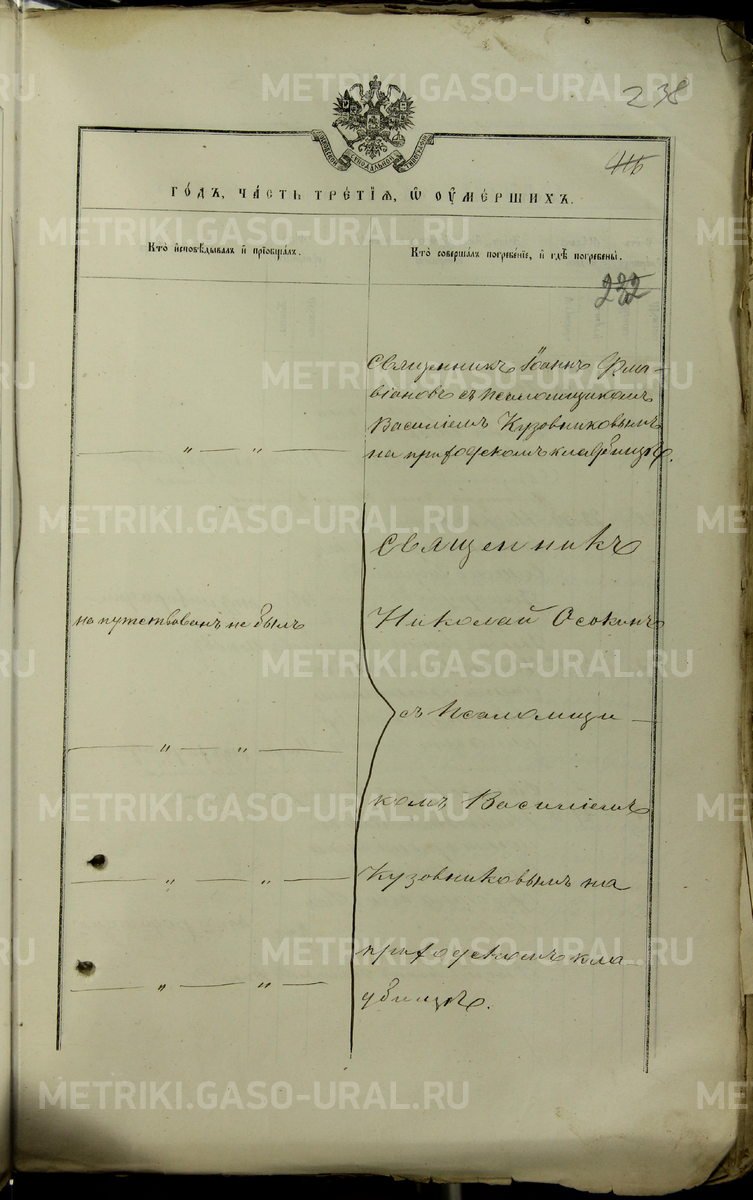 238
МОСКОВСКОЙ СѴНОДАЛЬНОЙ ТИПОГРАФІИ
416
ГО́ДЪ, ЧА́СТЬ ТРЕ́ТІѦ, Ѡ ОУМЕ́РШИХЪ.
Кто̀ и҆сповѣ́дывалъ и҆ прїѡбща́лъ.
Кто̀ соверша́лъ погребе́нїе, и҆ гдѣ̀ погребены̀.
232
Священникъ Іоаннъ Фла-
віановъ съ псаломщикомъ
Василіемъ Кузовниковымъ
— " — " —
на приходскомъ кладбищѣ.
Священникъ
напутствованъ не былъ
Николай Осокинъ
съ псаломщи-
— " — " —
комъ Василіемъ
— " — " —
Кузовниковымъ на
приходскомъ кла-
— " — " —
дбищѣ.
METRIKI.GASO-URAL.RU